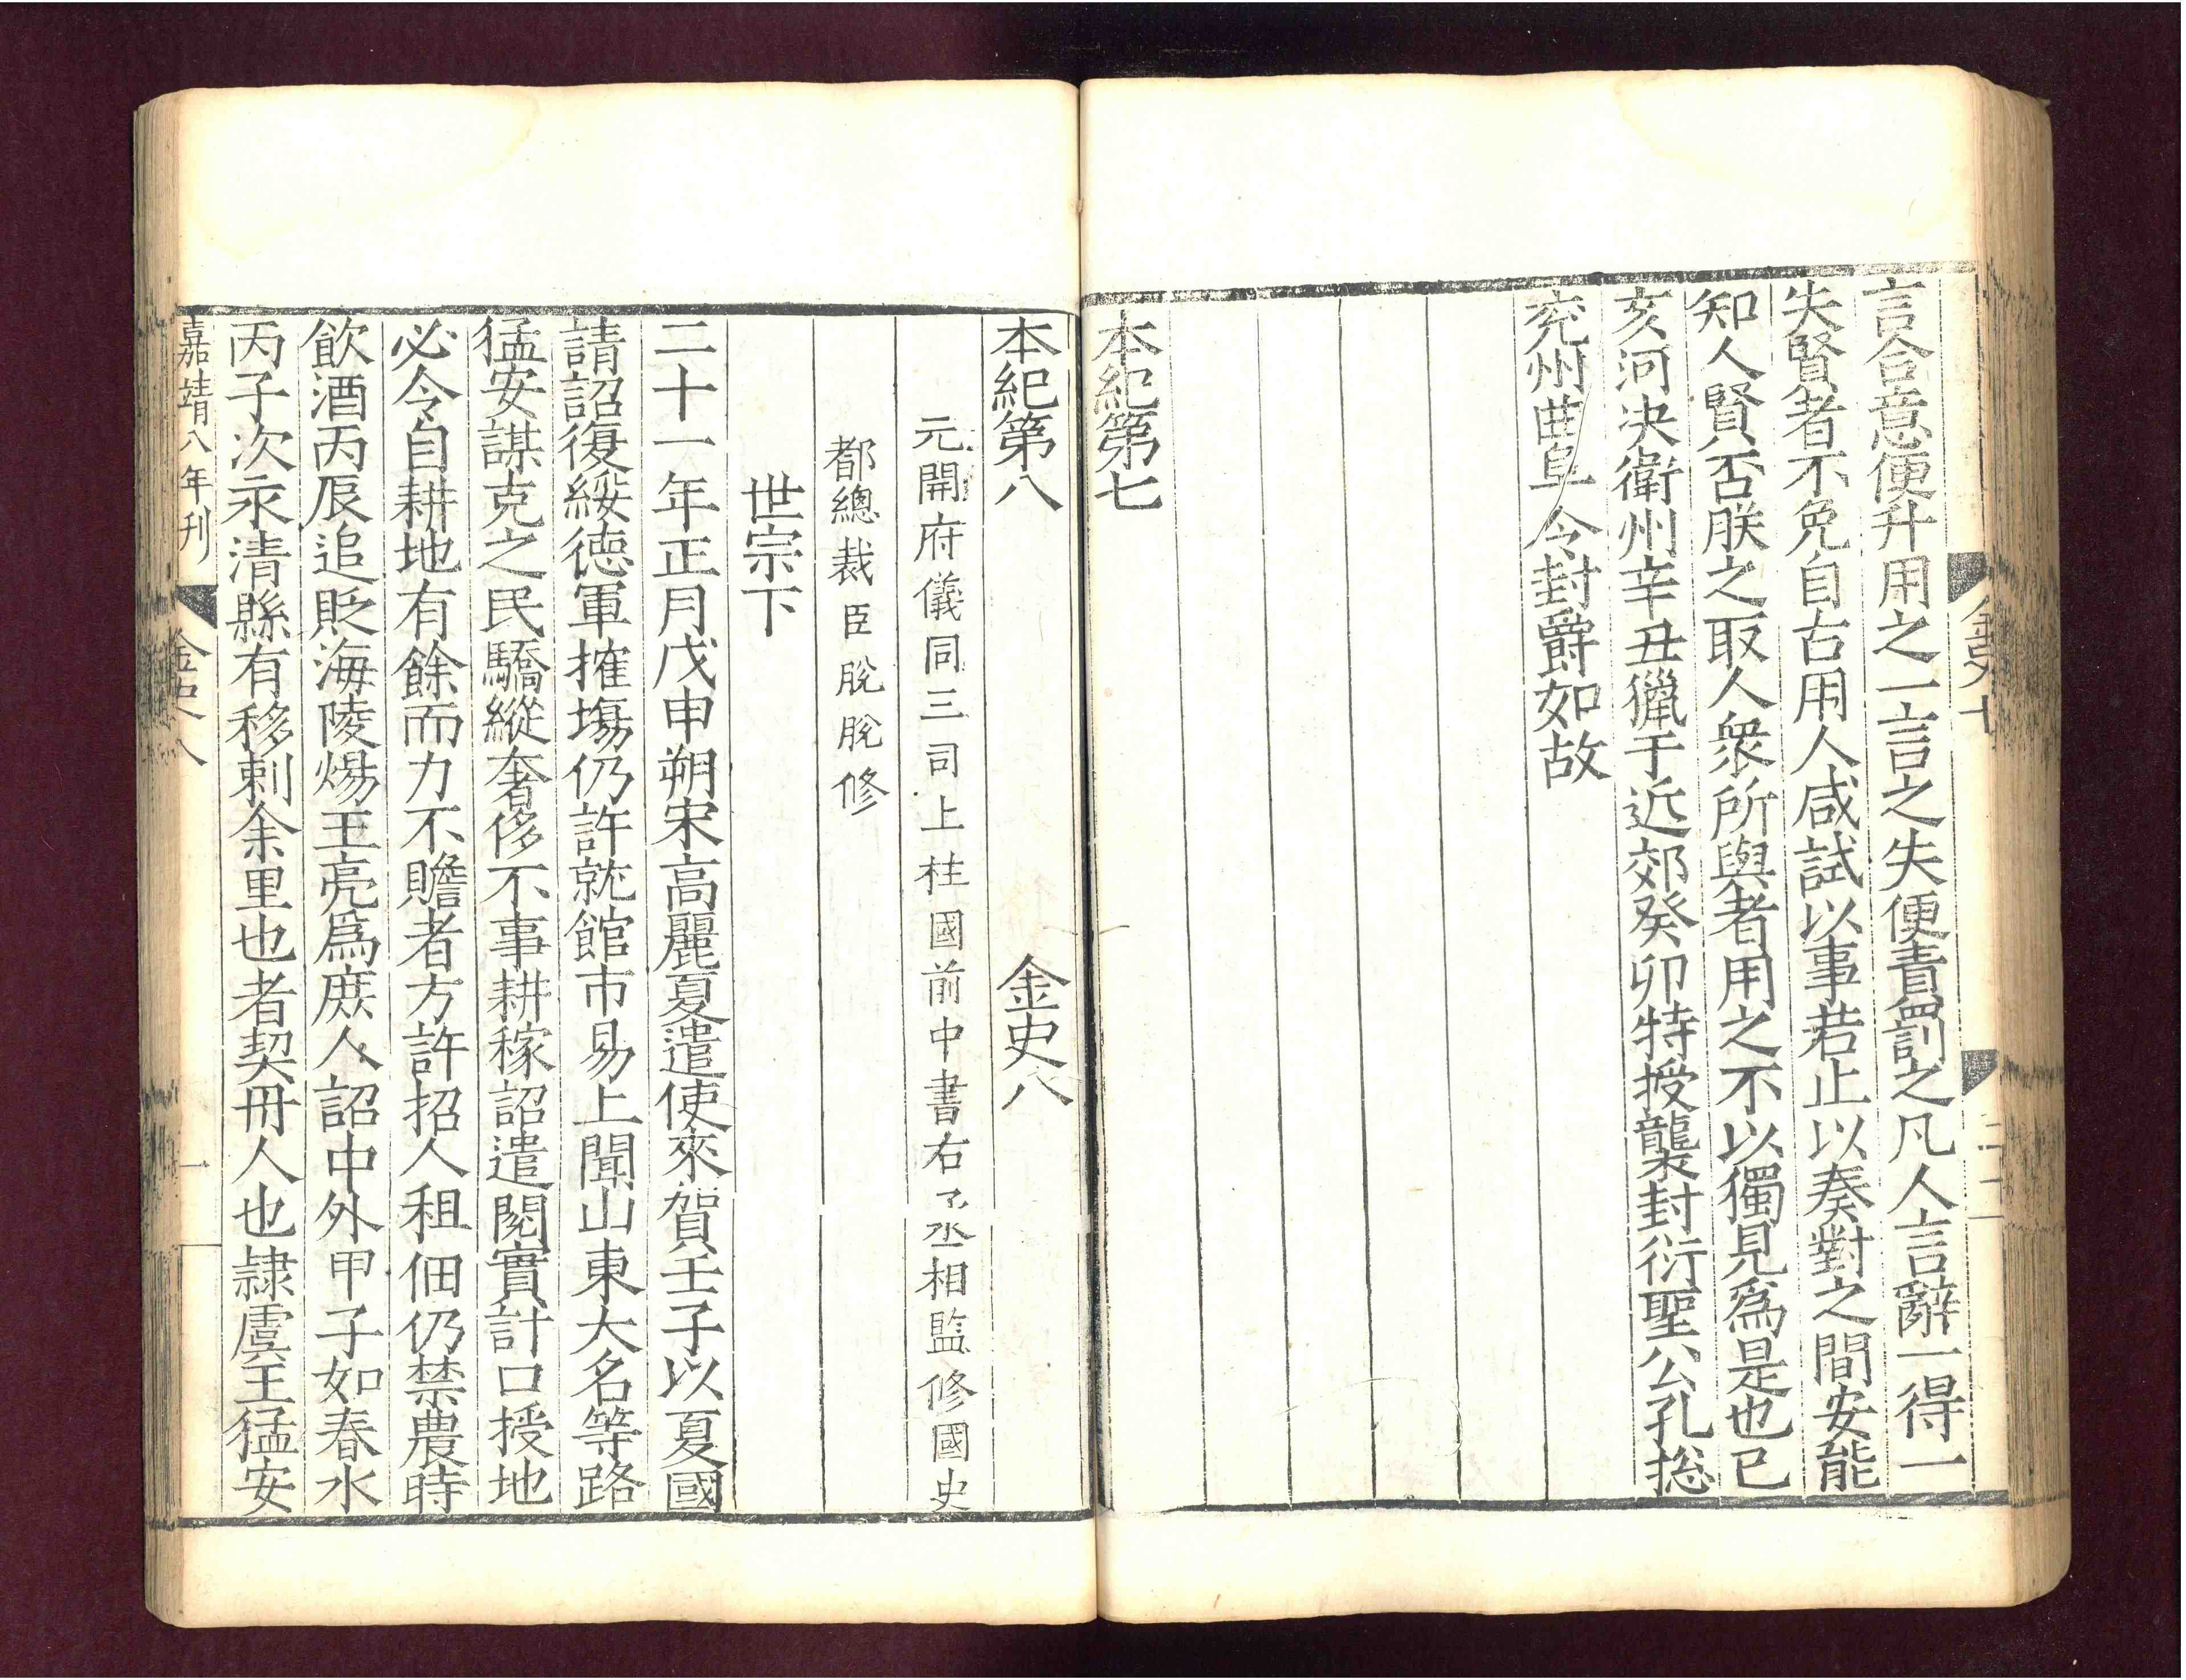 金史七
二十一
言合意便升用之一言之失便責罰之凡人言辭一得一
失賢者不免自古用人咸試以事若止以奏對之間安能
知人賢否朕之取人衆所與者用之不以獨見爲是也己
亥河决衛州辛丑獵于近郊癸卯特授襲封衍聖公孔摠
兖州曲阜令封爵如故
本紀第七
本紀第八 金史八
元開府儀同三司上柱國前中書右丞相監修國史
都總裁臣脫脫修
世宗下
二十一年正月戊申朔宋高麗夏遣使來賀壬子以夏國
請詔復綏德軍搉塲仍許就館市易上聞山東大名等路
猛安謀克之民驕縱奢侈不事耕稼詔遣閱實計口授地
必令自耕地有餘而力不贍者方許招人租佃仍禁農時
飲酒丙辰追貶海陵煬王亮爲庶人詔中外甲子如春水
丙子次永清縣有移剌余里也者契丹人也隷虞王猛安
嘉靖八年刊
金史八
一